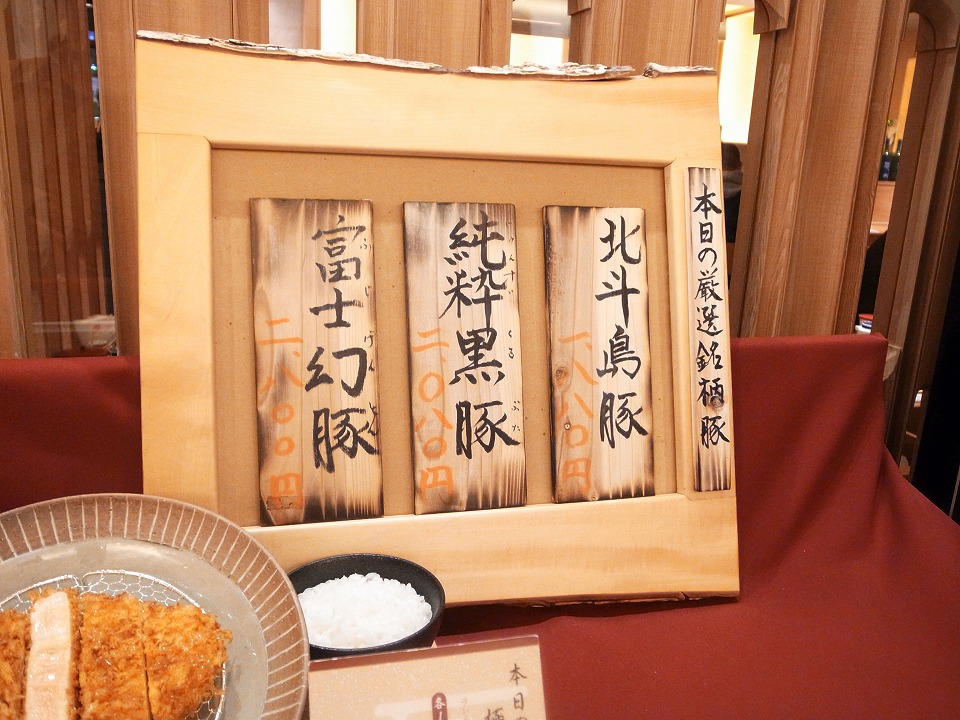 本日の厳選銘柄豚
北斗島豚
一、八八〇円
純粋黒豚
くろ ぶた
二、〇八〇円
富士幻豚
ふじ げん とん
二、八〇〇円
本日の